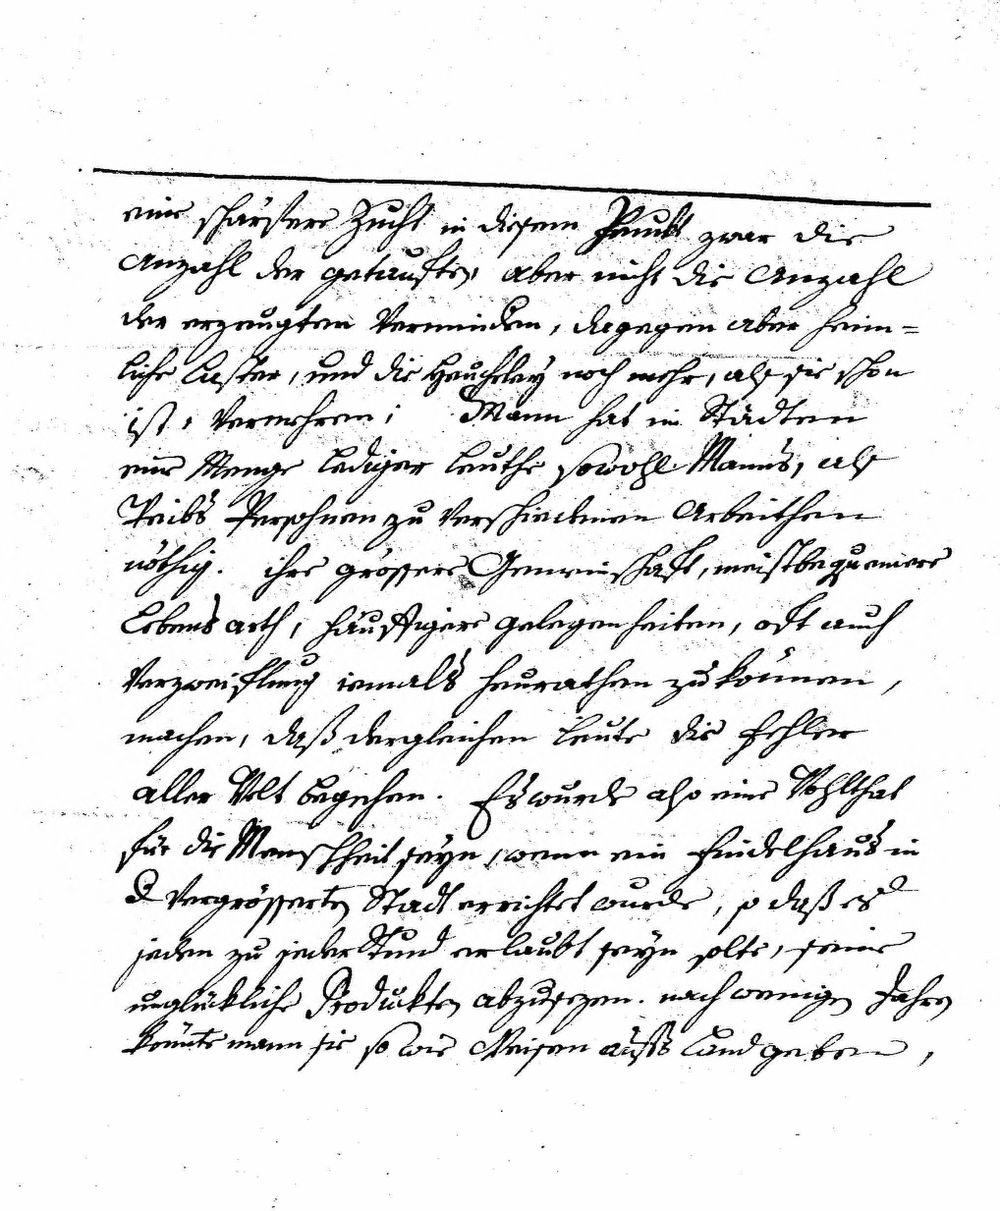 eine schärffere Zucht in diesem Punkt zwar die
Anzahl der getauften, aber nicht die Anzahl
der erzeugten Vermindern, dagegen aber heim=
liche Laster, und die Heucheley noch mehr, als sie schon
ist, vermehren; Mann hat in Städten
eine Menge Lediger Leuthe sowohl Manns, als
Weibs Persohnen zu verschiedenen Arbeithen
nöthig. ihre grössere Gemeinschaft, meist bequemere
Lebens arth, häuffigere gelegenheiten, oft auch
Verzweiflung iemals heurathen zu können,
machen, daß dergleichen Leute die Fehler
aller Welt begehen. Es wurde also eine Wohlthat
für die Menschheit seyn, wenn ein Findelhaus in
d Vergrösserten Stadt errichtet wurde, so daß es
jeden zu jeder Stund erlaubt seyn solte, seine
unglückliche Produkten abzusezen. nach wenigen Jahren
könnte mann sie so wie Waisen aufs Land geben,